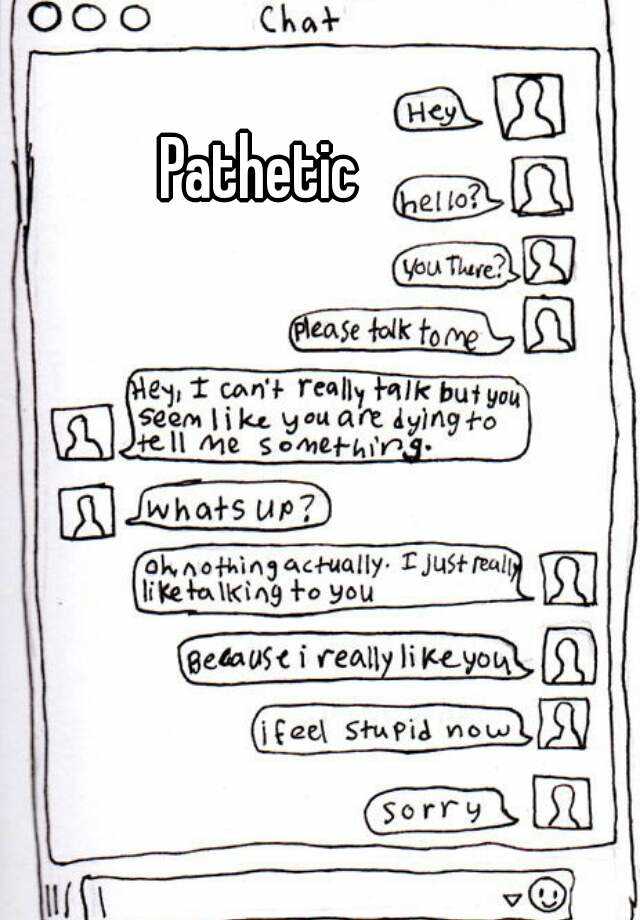 Chat
Hey
Pathetic
hello?
you There?
please talk to me
Hey, I can't really talk but you
seem like you are dying to
tell me something.
whats up?
oh nothing actually. I just really
like talking to you
Because i really like you
i feel stupid now
sorry